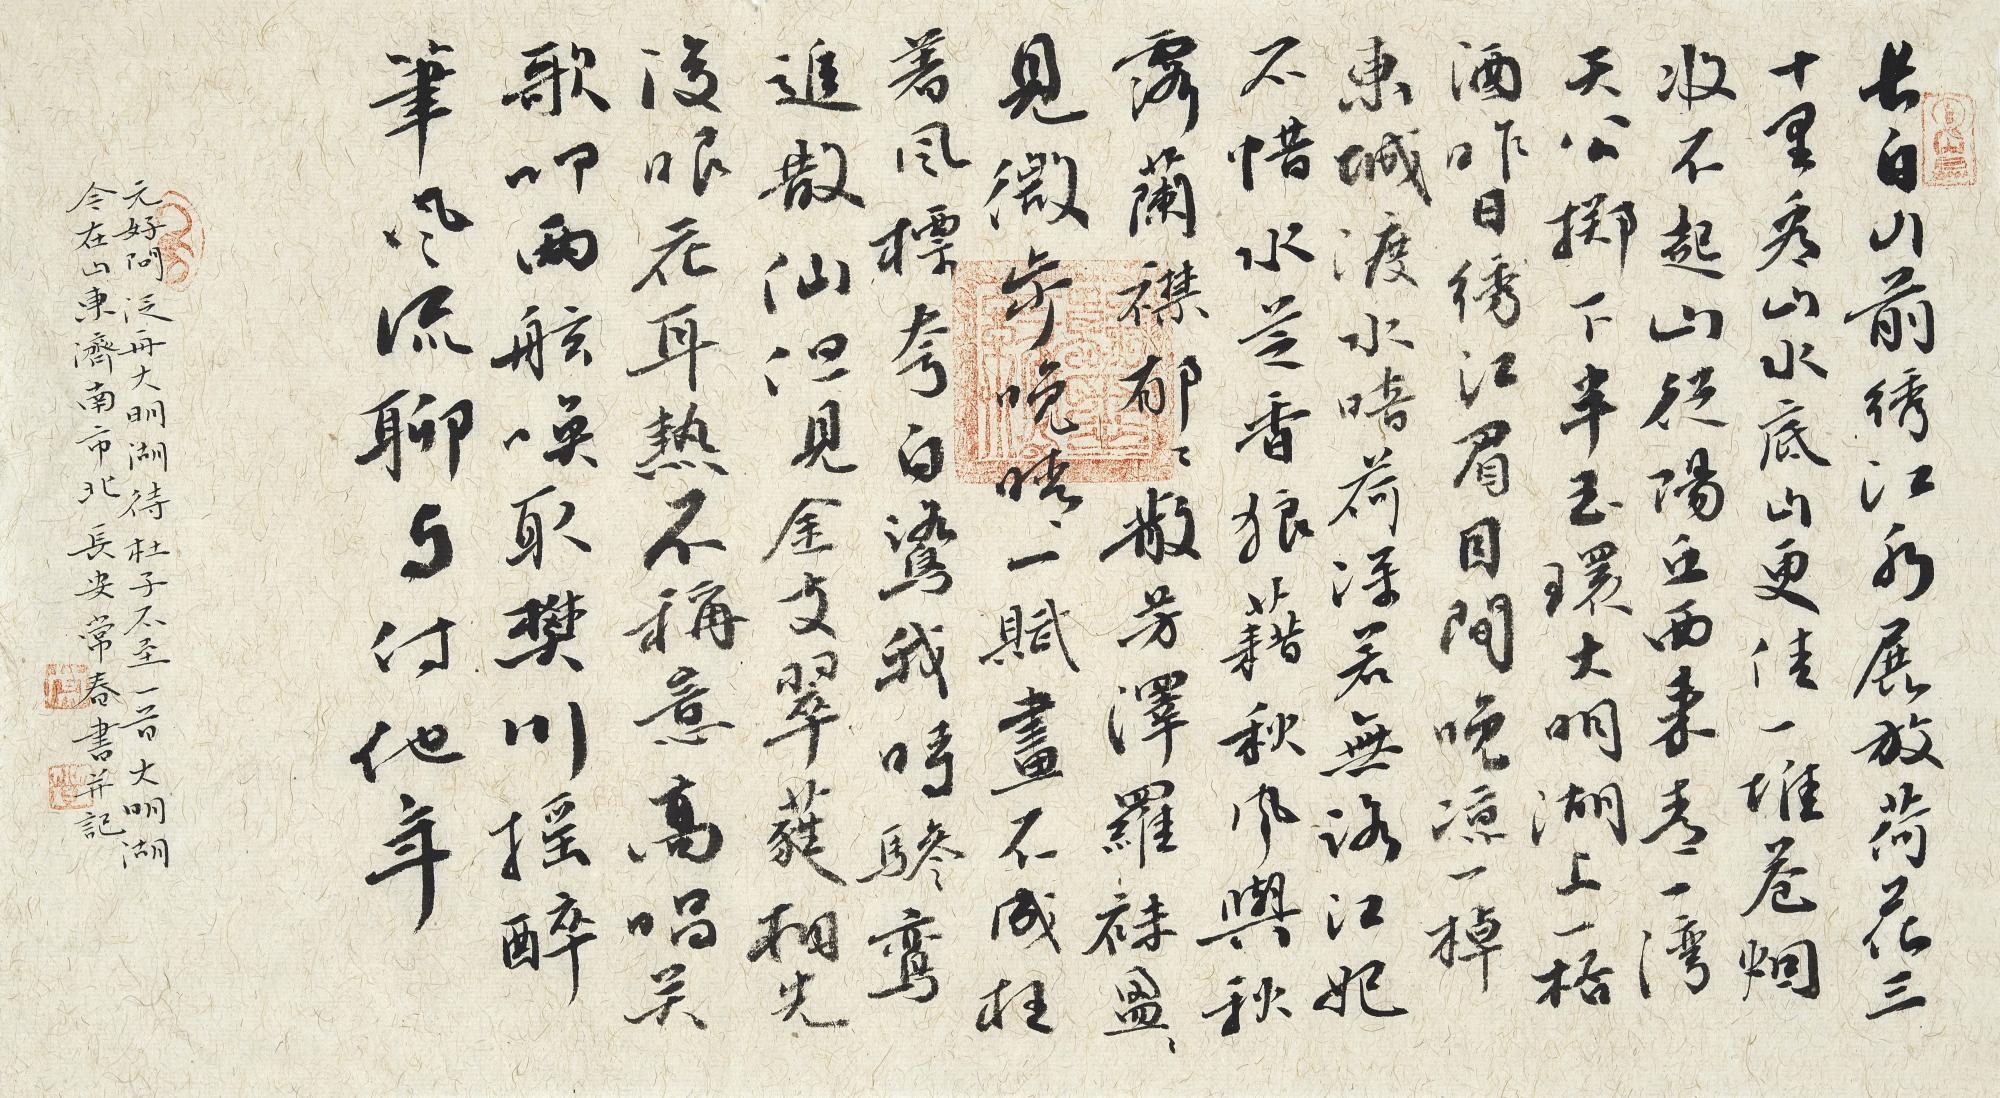 長白山前绣江水展放荷花三
十里看山水底山更佳一堆苍烟
收不起山從陽丘西来青一湾
天公掷下半玉環大明湖上一杯
酒昨日绣江眉目間晚凉一棹
東城渡水暗荷深若無路江妃
不惜水芝香狼藉秋风與秋
露蘭襟郁〻散芳澤羅襪盈〻
見微步晚晴一賦畫不成枉
著风標夸白鹭我時驂鸾
追散仙但見金支翠蕤相先
後眼花耳熱不稱意高唱吴
歌叩两舷唤取樊川摇醉
筆风流聊与付他年
元好问泛舟大明湖待杜子不至一首大明湖
今在山東濟南市北長安常春書并記